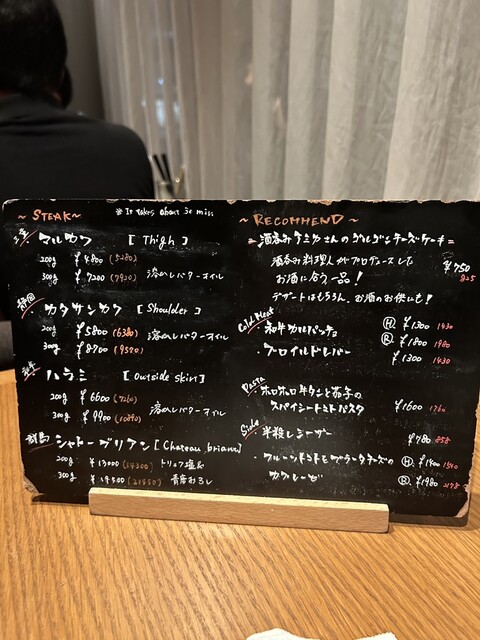 ~ STEAK ~ ※ It takes about 30 mins
マルカワ [ Thigh ]
200g ¥4800 (5280)
300g ¥7200 (7920) 溶かしバターオイル
カタサンカク [ Shoulder ]
200g ¥5800 (6380)
300g ¥8700 (9570) 溶かしバターオイル
ハラミ [ Outside skirt ]
200g ¥6600 (7260)
300g ¥9900 (10890) 溶かしバターオイル
シャトーブリアン [ Chateau briand ]
200g ¥13000 (14300) トリュフ塩
300g ¥19500 (21450) 青唐おろし
~ RECOMMEND ~
= 酒呑みケミカさんのゴルゴンチーズケーキ =
酒呑み料理人がプロデュースした ¥750 825
お酒に合う一品!
デザートはもちろん、お酒のお供にも!
Cold Meat
・和牛カルパッチョ Ⓗ ¥1300 1430
Ⓡ ¥1800 1980
・ブロイルドレバー ¥1300 1430
Pasta
・ホロホロ牛タンと茄子の
スパイシートマトパスタ ¥1600 1760
Side
・半殺しシーザー ¥780 858
・フルーツトマトとブラータチーズの Ⓗ ¥1400 1540
カプレーゼ Ⓡ ¥1980 2178